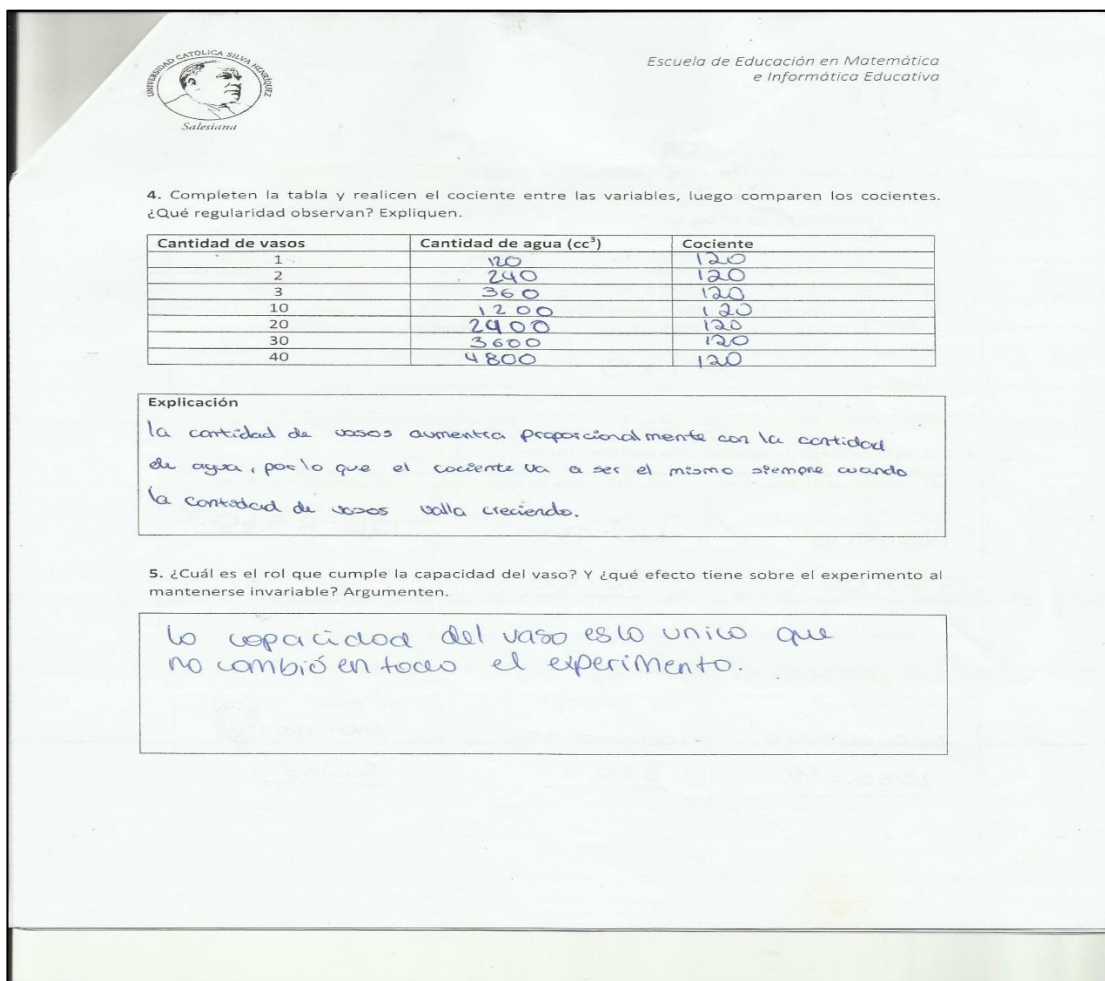 UNIVERSIDAD CATOLICA SILVA HENRIQUEZ
Salesiana
Escuela de Educación en Matemática
e Informática Educativa
4. Completen la tabla y realicen el cociente entre las variables, luego comparen los cocientes.
¿Qué regularidad observan? Expliquen.
Cantidad de vasos Cantidad de agua (cc³) Cociente
1 120 120
2 240 120
3 360 120
10 1200 120
20 2400 120
30 3600 120
40 4800 120
Explicación
la cantidad de vasos aumentra proporcionalmente con la cantidad
de agua, por lo que el cociente va a ser el mismo siempre cuando
la cantidad de vasos valla creciendo.
5. ¿Cuál es el rol que cumple la capacidad del vaso? Y ¿qué efecto tiene sobre el experimento al
mantenerse invariable? Argumenten.
la capacidad del vaso es lo unico que
no cambió en todo el experimento.